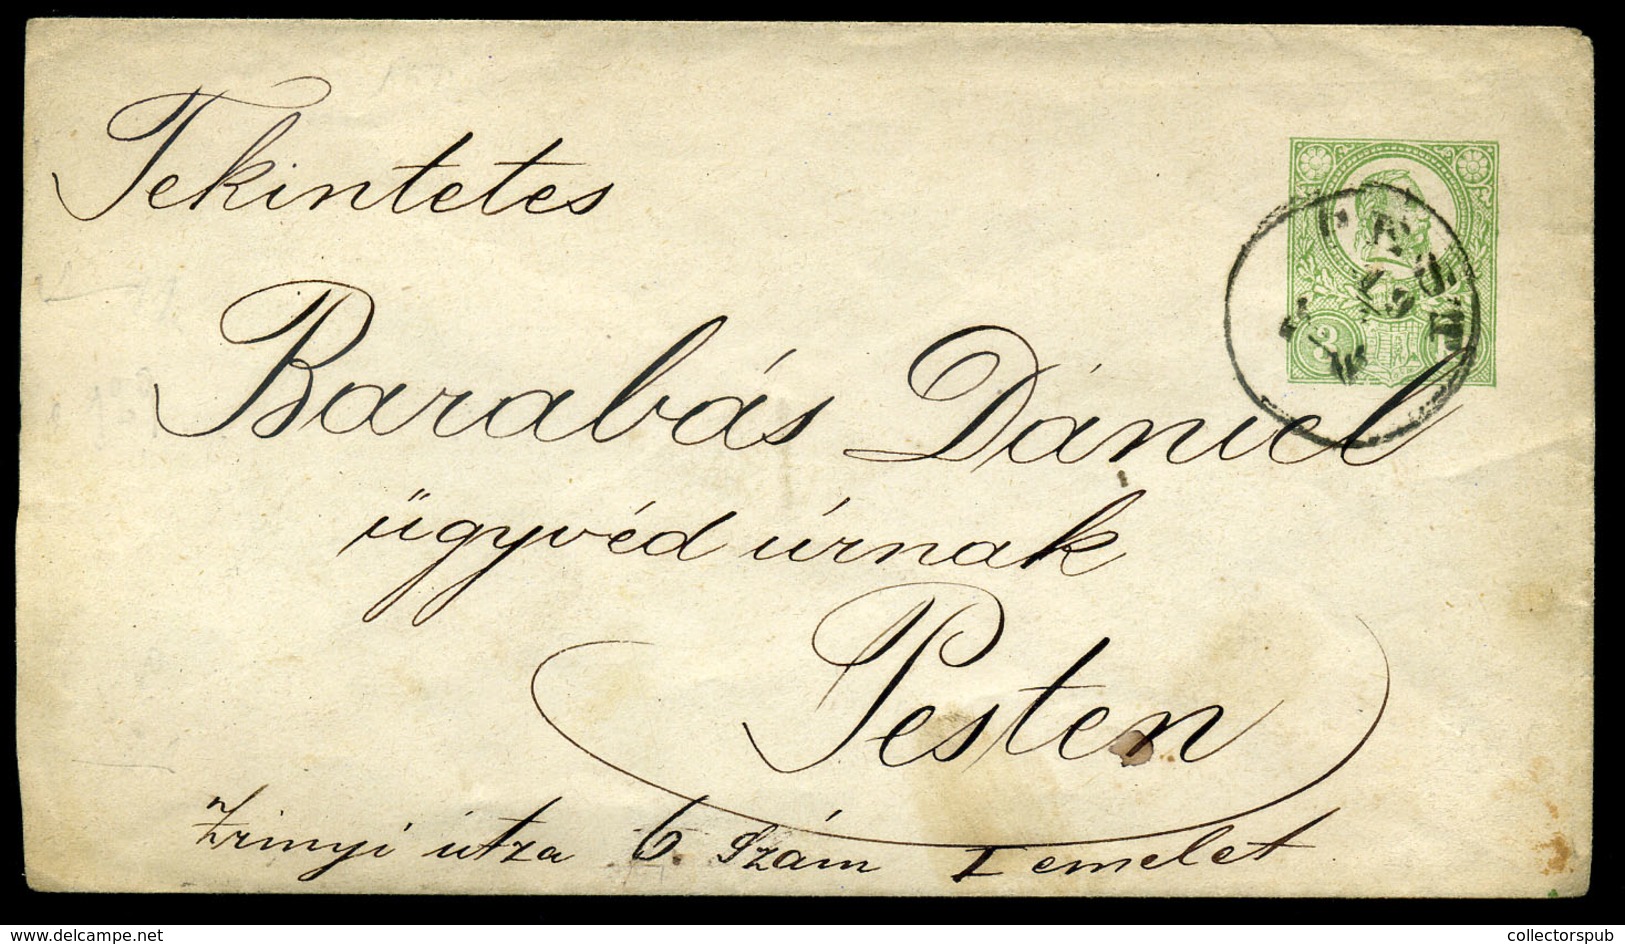 Tekintetes
PEST
3
Barabás Dániel
ügyvéd úrnak
Pesten
Zrinyi utza 6. szám I emelet
www.delcampe.net
collectorspub